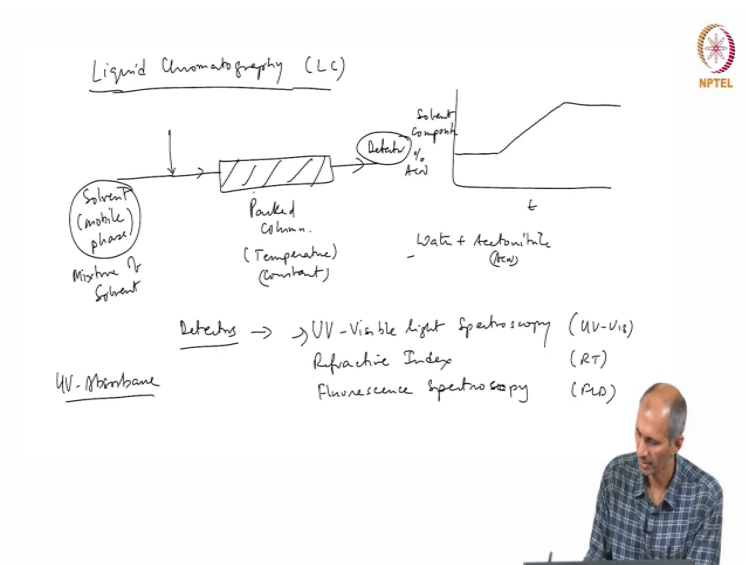 Liquid Chromatography (LC)
NPTEL
Solvent
(mobile)
phase
Mixture of
Solvent
Packed
Column.
(Temperature)
(Constant)
Detector
Solvent
%
ACN
t
Water + Acetonitrile
(ACN)
Detectors → UV-Visible light Spectroscopy (UV-Vis)
Refractive Index (RI)
Fluorescence Spectroscopy (FLD)
UV-Absorbance